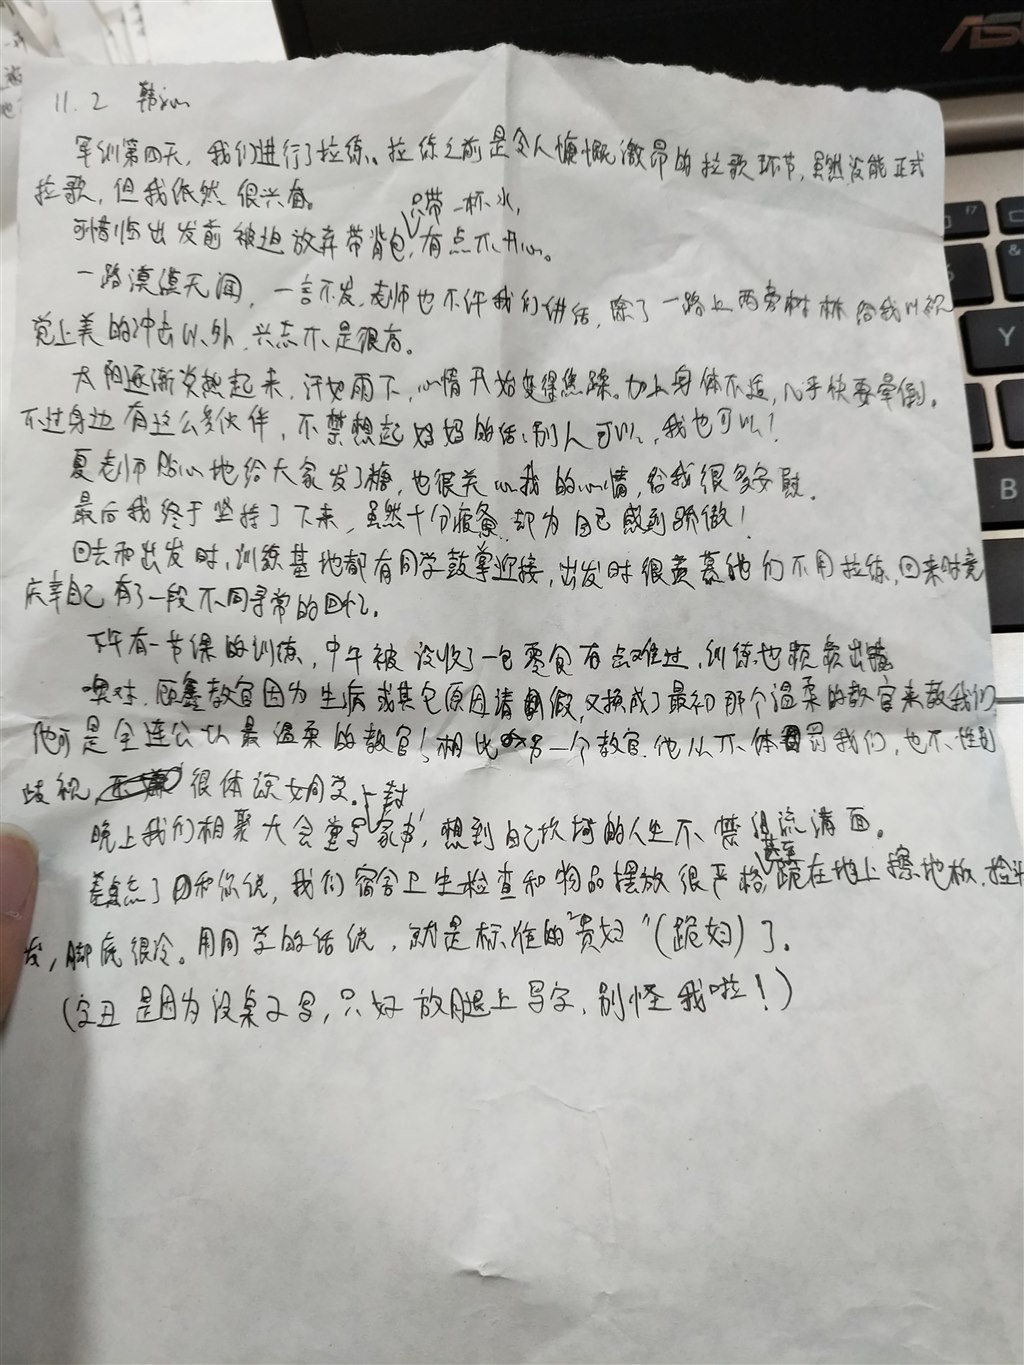 11.2 韩
军训第四天，我们进行了拉练。拉练之前是令人慷慨激昂的拉歌环节，虽然没能正式
拉歌，但我依然很兴奋。
可惜临出发前被迫放弃带背包，只带一杯水，有点不开心。
一路漠漠无闻，一言不发，老师也不许我们讲话，除了一路上两旁树林给我以视
觉上美的冲击以外，兴志不是很高。
太阳逐渐炎热起来，汗如雨下，心情开始变得焦躁。加上身体不适，几乎快要晕倒。
不过身边有这么多伙伴，不禁想起妈妈的话：别人可以，我也可以！
夏老师贴心地给大家发了糖，也很关心我的心情，给我很多安慰。
最后我终于坚持了下来，虽然十分疲惫，却为自己感到骄傲！
回去和出发时，训练基地都有同学鼓掌迎接，出发时很羡慕他们不用拉练，回来时竟
庆幸自己有了一段不同寻常的回忆。
下午有一节课的训练，中午被没收了一包零食有点难过，训练也频频出错
噢对，顾鑫教官因为生病或其它原因请假，又换成了最初那个温柔的教官来教我们
他可是全连公认最温柔的教官！相比另一个教官他从不体罚我们，也不性别
歧视，很体谅女同学。
晚上我们相聚大会堂写一封家书，想到自己坎坷的人生不禁泪流满面。
差点忘了和你说，我们宿舍卫生检查和物品摆放很严格，甚至跪在地上擦地板，捡头
发，脚底很冷。用同学的话说，就是标准的"贵妇"（跪妇）了。
（字丑是因为没桌子写，只好放腿上写字，别怪我啦！）
ASUS
F7
&
Y
B